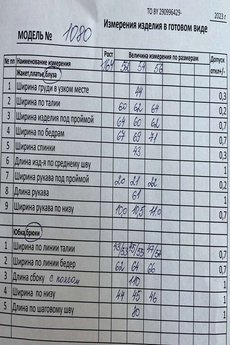 ТО ВУ 290996429-
2023 г
Измерения изделия в готовом виде
МОДЕЛЬ № 1080
№ пп Наименование измерения Рост Величина измерения по размерам Допуск
Жакет, платье, блуза 164 52 54 56 откл +/-
1 Ширина груди в узком месте 44 0,3
2 Ширина по талии 60 62 64 0,7
3 Ширина изделия под проймой 64 60 62 0,7
4 Ширина по бедрам 67 69 71 0,7
5 Ширина спинки 43 0,3
6 Длина изд-я по среднему шву
7 Ширина рукава под проймой 20 21 22 0,2
8 Длина рукава 61
9 Ширина рукава по низу 10,0 10,5 11,0
Юбка, брюки
1 Ширина по линии талии 0,7
2 Ширина по линии бедер 62 64 66 0,7
3 Длина сбоку с поясом 110
4 Ширина по низу 44 45 46
5 Длина по шаговому шву 80